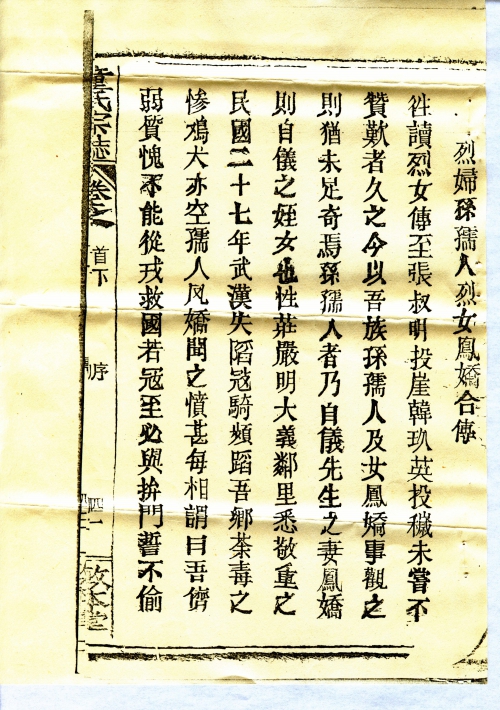 烈婦孫孺人烈女鳳嬌合傳
徃讀烈女傳至張叔明投崖韓玖英投穢未嘗不
贊歎者久之今以吾族孫孺人及女鳳嬌事觀之
則猶未足奇焉孫孺人者乃自儀先生之妻鳳嬌
則自儀之姪女也性莊嚴明大義鄰里悉敬重之
民國二十七年武漢失陷冦騎頻蹈吾鄉荼毒之
慘鷄犬亦空孺人凤嬌聞之憤甚每相謂曰吾儕
弱質愧不能從戎救國若冠至必與拚門誓不偷
童氏宗誌
卷之
首下
序
四一